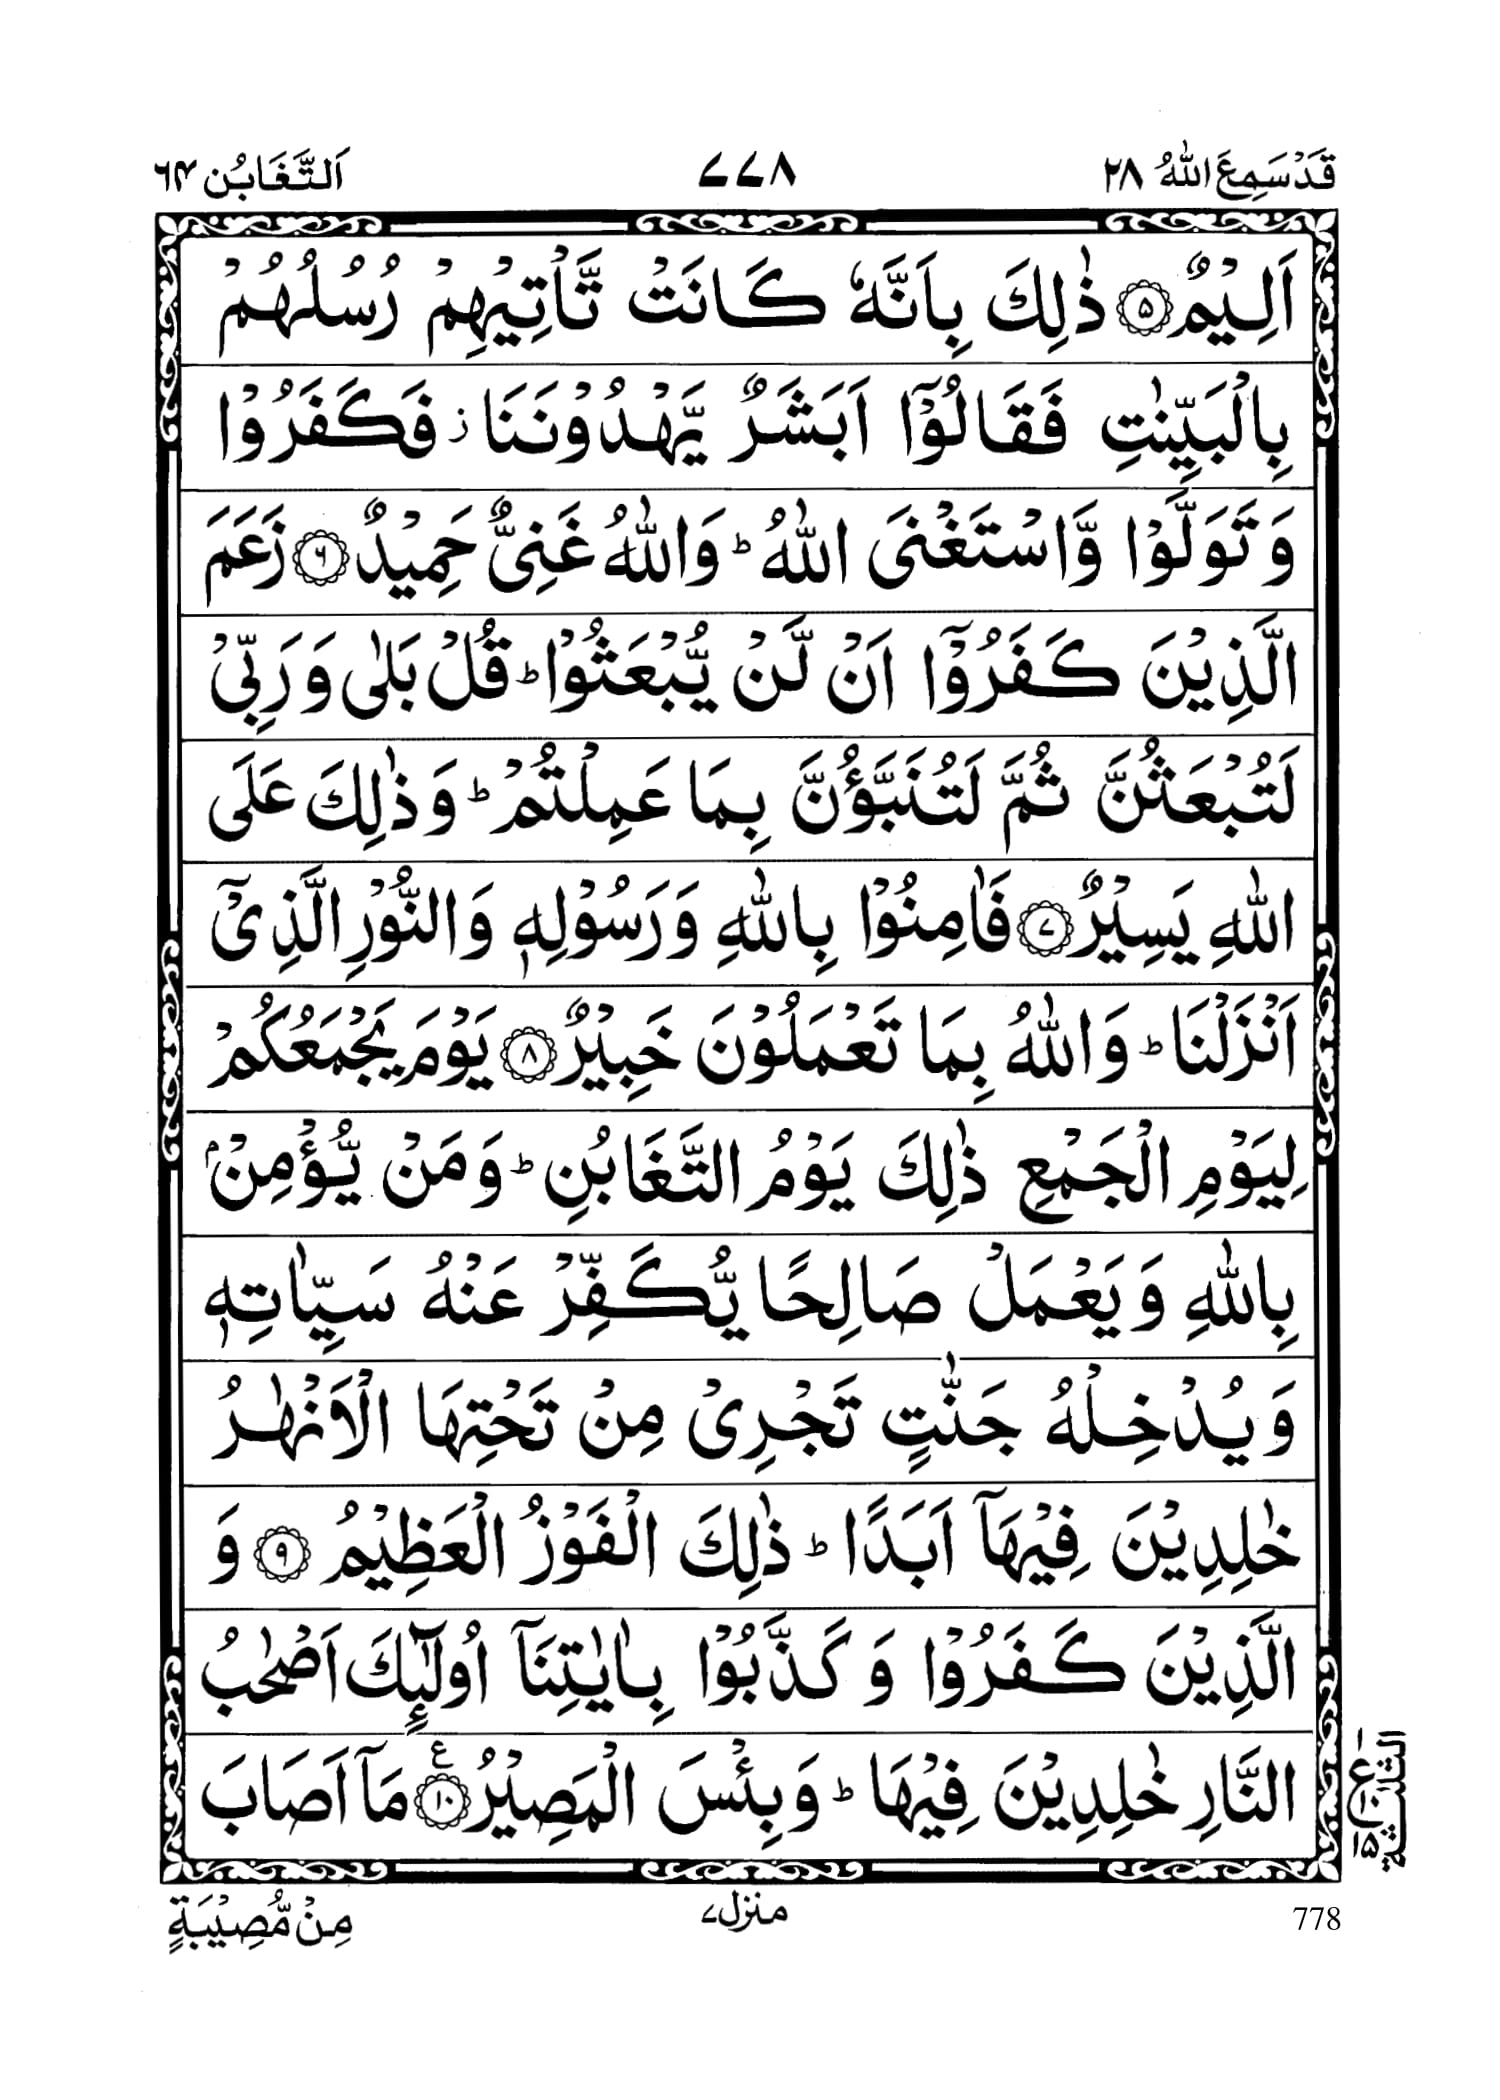 قَدْ سَمِعَ اللّٰهُ ٢٨
٧٧٨
اَلتَّغَابُن ٦٤
اَلِيْمٌ ۝٥ ذٰلِكَ بِاَنَّهٗ كَانَتْ تَّاْتِيْهِمْ رُسُلُهُمْ
بِالْبَيِّنٰتِ فَقَالُوْۤا اَبَشَرٌ يَّهْدُوْنَنَا ز فَكَفَرُوْا
وَ تَوَلَّوْا وَّاسْتَغْنَى اللّٰهُ ؕ وَاللّٰهُ غَنِيٌّ حَمِيْدٌ ۝٦ زَعَمَ
الَّذِيْنَ كَفَرُوْۤا اَنْ لَّنْ يُّبْعَثُوْا ؕ قُلْ بَلٰى وَ رَبِّيْ
لَتُبْعَثُنَّ ثُمَّ لَتُنَبَّؤُنَّ بِمَا عَمِلْتُمْ ؕ وَ ذٰلِكَ عَلَى
اللّٰهِ يَسِيْرٌ ۝٧ فَاٰمِنُوْا بِاللّٰهِ وَ رَسُوْلِهٖ وَالنُّوْرِ الَّذِيْۤ
اَنْزَلْنَا ؕ وَاللّٰهُ بِمَا تَعْمَلُوْنَ خَبِيْرٌ ۝٨ يَوْمَ يَجْمَعُكُمْ
لِيَوْمِ الْجَمْعِ ذٰلِكَ يَوْمُ التَّغَابُنِ ؕ وَ مَنْ يُّؤْمِنْۢ
بِاللّٰهِ وَ يَعْمَلْ صَالِحًا يُّكَفِّرْ عَنْهُ سَيِّاٰتِهٖ
وَ يُدْخِلْهُ جَنّٰتٍ تَجْرِيْ مِنْ تَحْتِهَا الْاَنْهٰرُ
خٰلِدِيْنَ فِيْهَاۤ اَبَدًا ؕ ذٰلِكَ الْفَوْزُ الْعَظِيْمُ ۝٩ وَ
الَّذِيْنَ كَفَرُوْا وَ كَذَّبُوْا بِاٰيٰتِنَاۤ اُولٰٓئِكَ اَصْحٰبُ
النَّارِ خٰلِدِيْنَ فِيْهَا ؕ وَ بِئْسَ الْمَصِيْرُ ۝١٠ ع مَاۤ اَصَابَ
١
ع
١٠
١٥
الثلٰثة
مِنْ مُّصِيْبَةٍ
منزل ٧
778